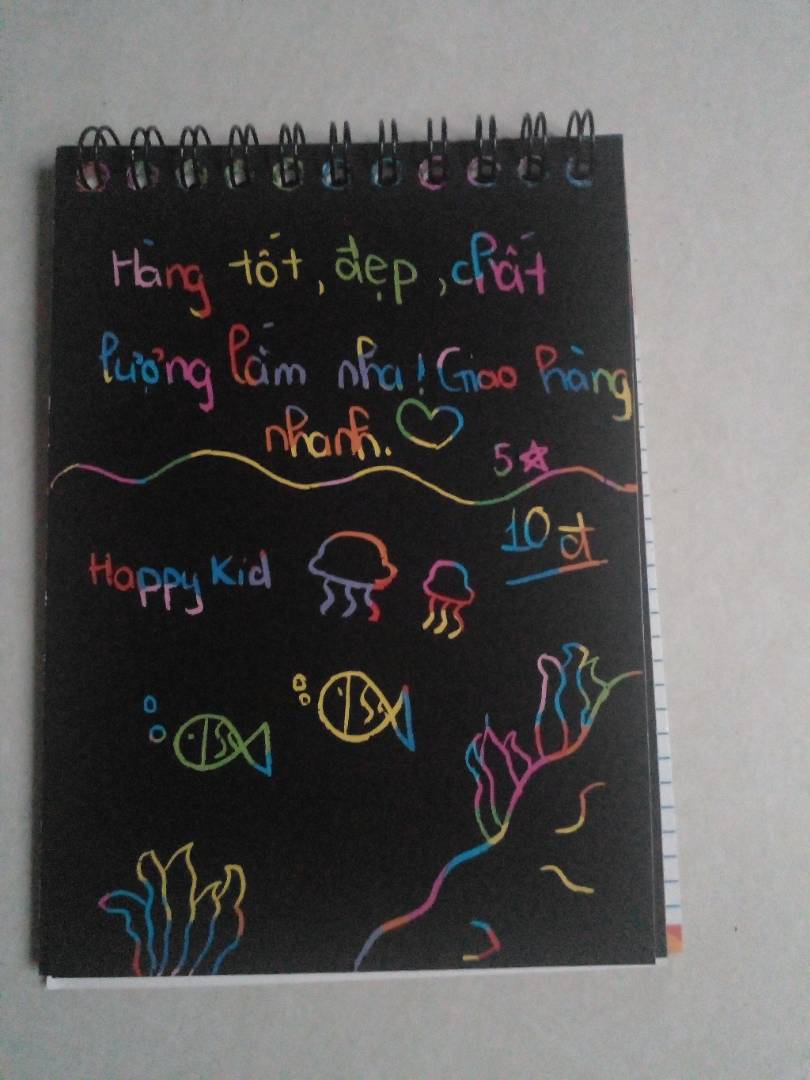 Hàng tốt, đẹp, chất
lượng lắm nha! Giao hàng
nhanh.
5
10đ
Happy Kid